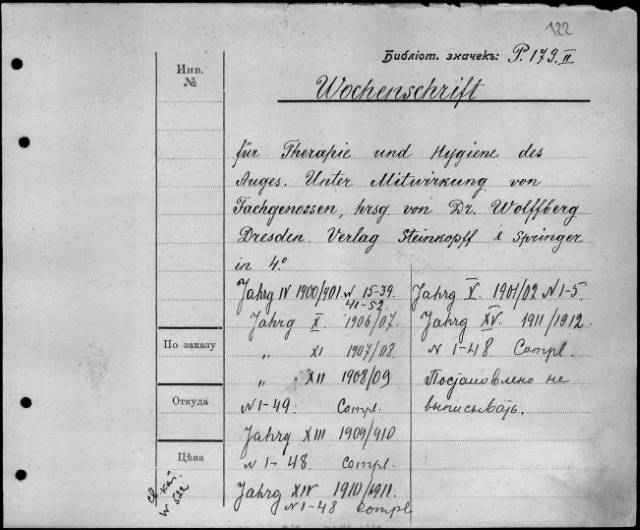 122
Библіот. значекъ: P. 179 II
Инв.
№
Wochenschrift
für Therapie und Hygiene des
Auges. Unter Mitwirkung von
Fachgenossen, hrsg. von Dr. Wolffberg
Dresden. Verlag Steinkopff & Springer
in 4.º
Jahrg IV 1900/901. N 15-39.
41-52.
Jahrg X 1906/07.
„ XI 1907/08.
„ XII 1908/09
N 1-49. Compl.
Jahrg XIII 1909/910
N 1-48. Compl.
Jahrg XIV 1910/1911.
N 1-48 Compl
Jahrg V. 1901/02 N 1-5.
Jahrg XV. 1911/1912.
N 1-48 Compl.
Постановлено не
выписывать.
По заказу
Откуда
Цѣна
N 532